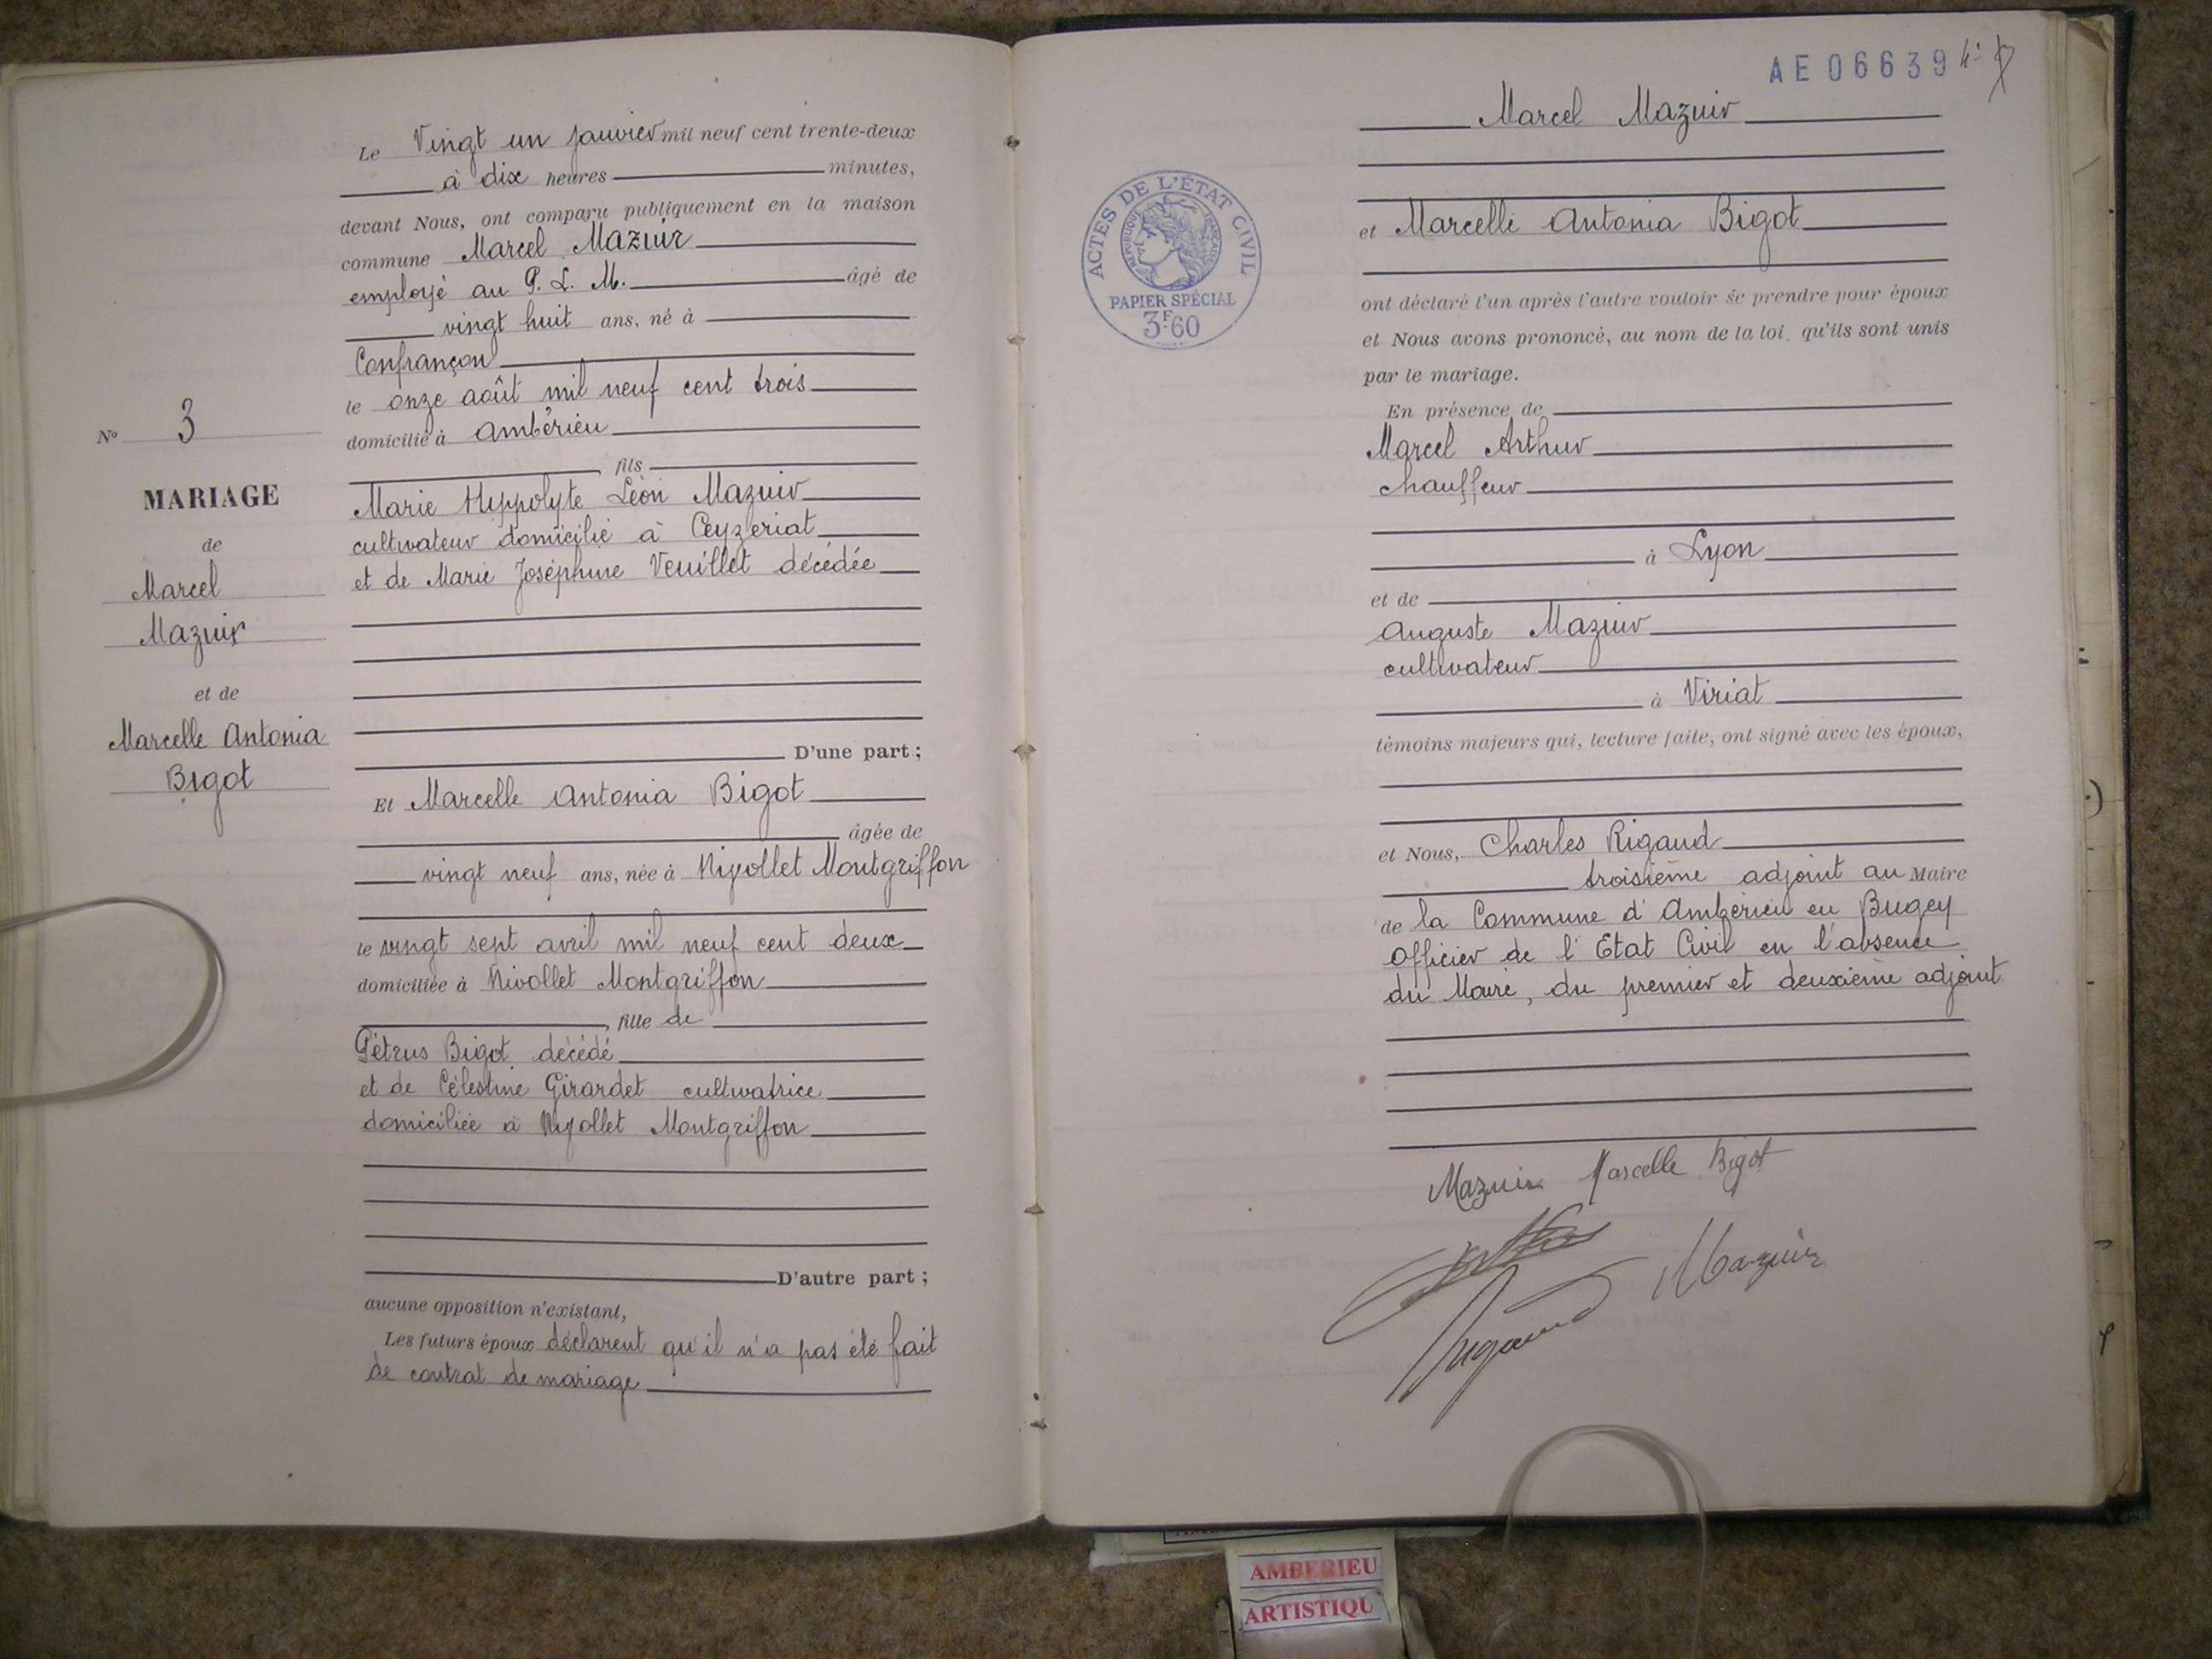 Nº 3
MARIAGE
de
Marcel
Mazuir
et de
Marcelle Antonia
Bigot
Le Vingt un janvier mil neuf cent trente-deux
à dix heures minutes,
devant Nous, ont comparu publiquement en la maison
commune Marcel Mazuir
employé au P. L. M. âgé de
vingt huit ans, né à
Confrançon
le onze août mil neuf cent trois
domicilié à Ambérieu
fils
Marie Hyppolyte Léon Mazuir
cultivateur domicilié à Ceyzeriat
et de Marie Joséphine Veuillet décédée
D'une part;
Et Marcelle Antonia Bigot
âgée de
vingt neuf ans, née à Nivollet Montgriffon
le vingt sept avril mil neuf cent deux
domiciliée à Nivollet Montgriffon
, fille de
Pétrus Bigot décédé
et de Célestine Girardet cultivatrice
domiciliée à Nivollet Montgriffon
D'autre part;
aucune opposition n'existant,
Les futurs époux déclarent qu'il n'a pas été fait
de contrat de mariage
AE06639
Marcel Mazuir
et Marcelle Antonia Bigot
ont déclaré l'un après l'autre vouloir se prendre pour époux
et Nous avons prononcé, au nom de la loi, qu'ils sont unis
par le mariage.
En présence de
Marcel Arthur
chauffeur
à Lyon
et de
Auguste Mazuir
cultivateur
à Viriat
témoins majeurs qui, lecture faite, ont signé avec les époux,
et Nous, Charles Rigaud
troisième adjoint au Maire
de la Commune d'Ambérieu en Bugey
Officier de l'Etat Civil en l'absence
du Maire, du premier et deuxième adjoint
Mazuir Marcelle Bigot
Mazuir
Rigaud
ACTES DE L'ÉTAT CIVIL
RÉPUBLIQUE FRANÇAISE
PAPIER SPÉCIAL
3F60
AMBERIEU
ARTISTIQU